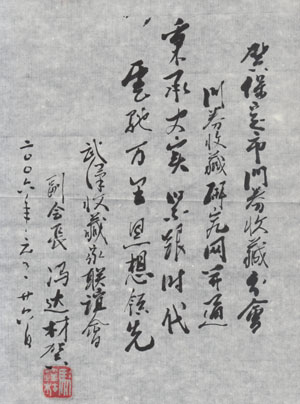 贺保定市门券收藏分会
门券收藏研究网开通
秉承 实 跟时代
驰万里思想领先
武汉收藏家联谊会
副会长冯达材贺
二〇〇六年元 廿六日